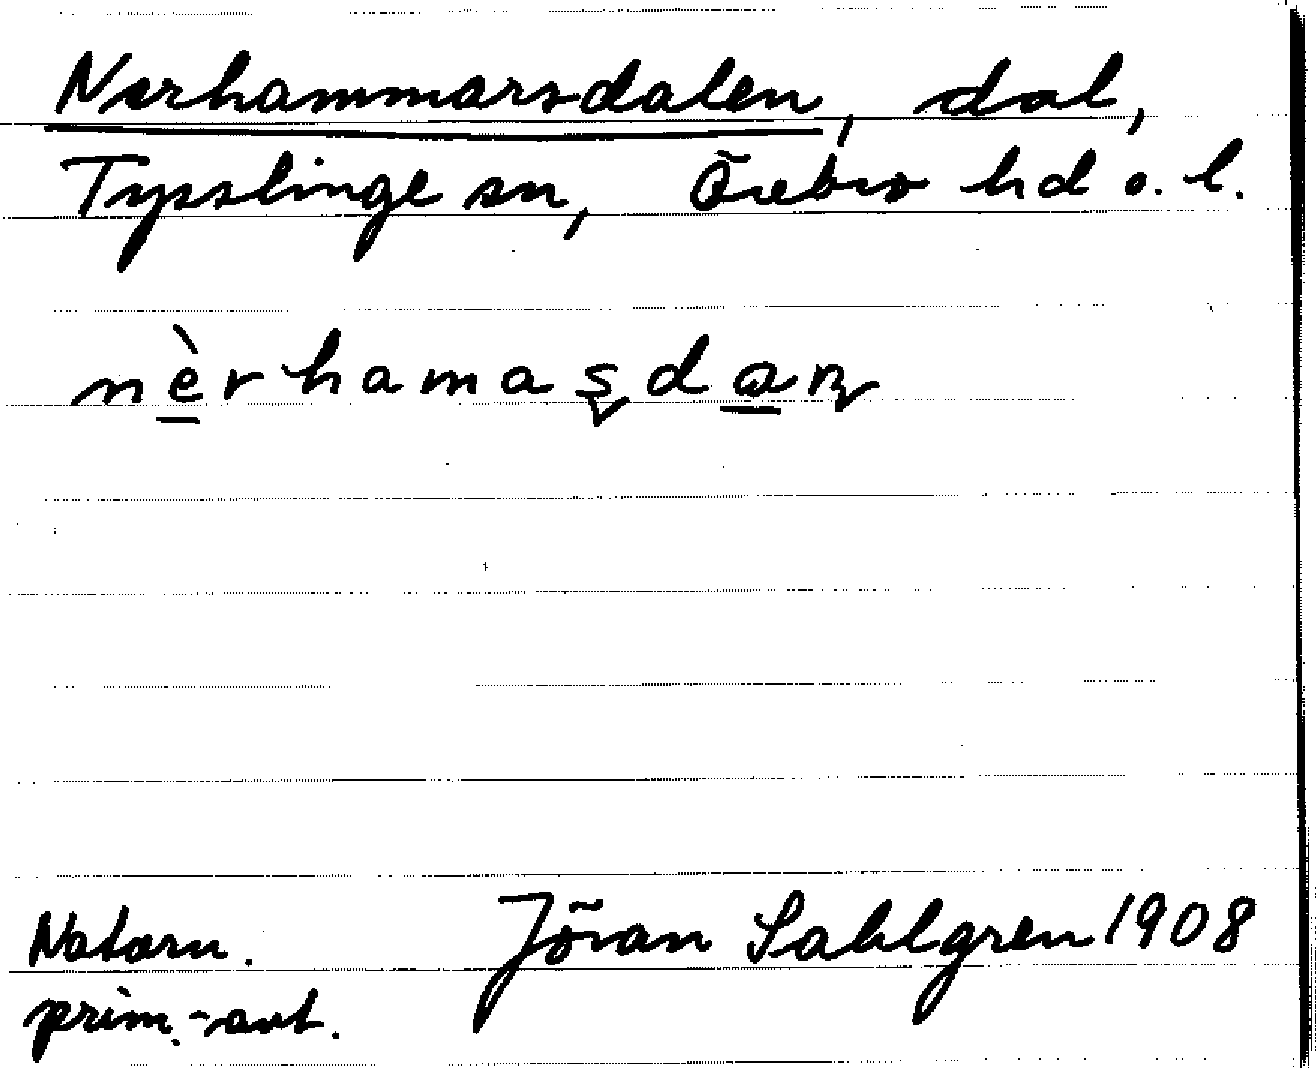 Nerhammarsdalen, dal,
Tysslinge sn, Örebro hd o. l.
nèrhamaşdaɳ
Natarn. Jöran Sahlgren 1908
prim.-avt.